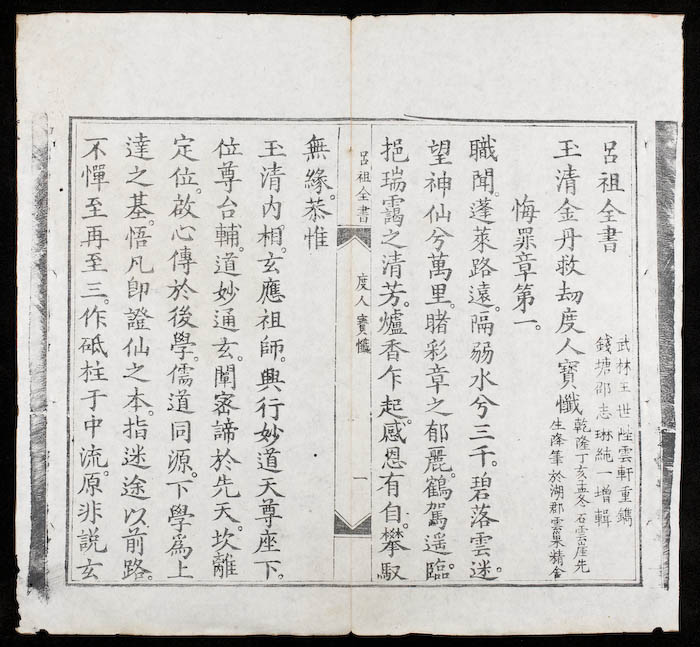 呂祖全書
武林王世陛雲軒重鐫
錢塘邵志琳純一增輯
玉清金丹救刼度人寶懺
乾隆丁亥孟冬石雲崖先
生降筆於湖郡雲巢精舍
悔罪章第一。
職聞。蓬萊路遠。隔弱水兮三千。碧落雲迷。
望神仙兮萬里。睹彩章之郁麗。鶴駕遥臨。
挹瑞靄之清芳。爐香乍起。感恩有自。攀馭
呂祖全書
度人寶懺
一
無緣。恭惟
玉清內相。玄應祖師。興行妙道天尊座下。
位尊台輔。道妙通玄。闡密諦於先天。坎離
定位。啟心傳於後學。儒道同源。下學爲上
達之基。悟凡即證仙之本。指迷途以前路。
不憚至再至三。作砥柱于中流。原非説玄